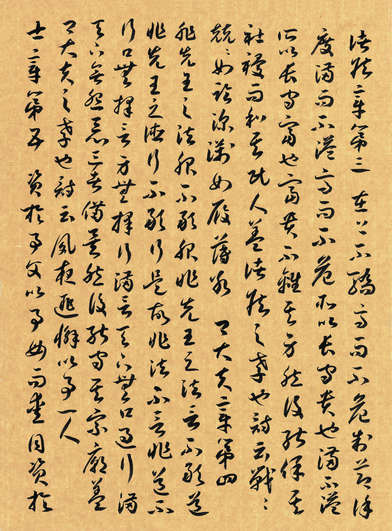 諸侯章第三 在上不驕高而不危制節謹
度滿而不溢高而不危所以長守貴也滿不溢
所以長守富也富貴不離其身然後能保其
社稷而和其民人蓋諸侯之孝也詩云戰〻
兢〻如臨深淵如履薄冰 卿大夫章第四
非先王之法服不敢服非先王之法言不敢道
非先王之德行不敢行是故非法不言非道不
行口無擇言身無擇行滿言天下無口過行滿
天下無怨惡三者備矣然後能守其宗廟蓋
卿大夫之孝也詩云夙夜匪懈以事一人
士章第五 資於事父以事母而愛同資於